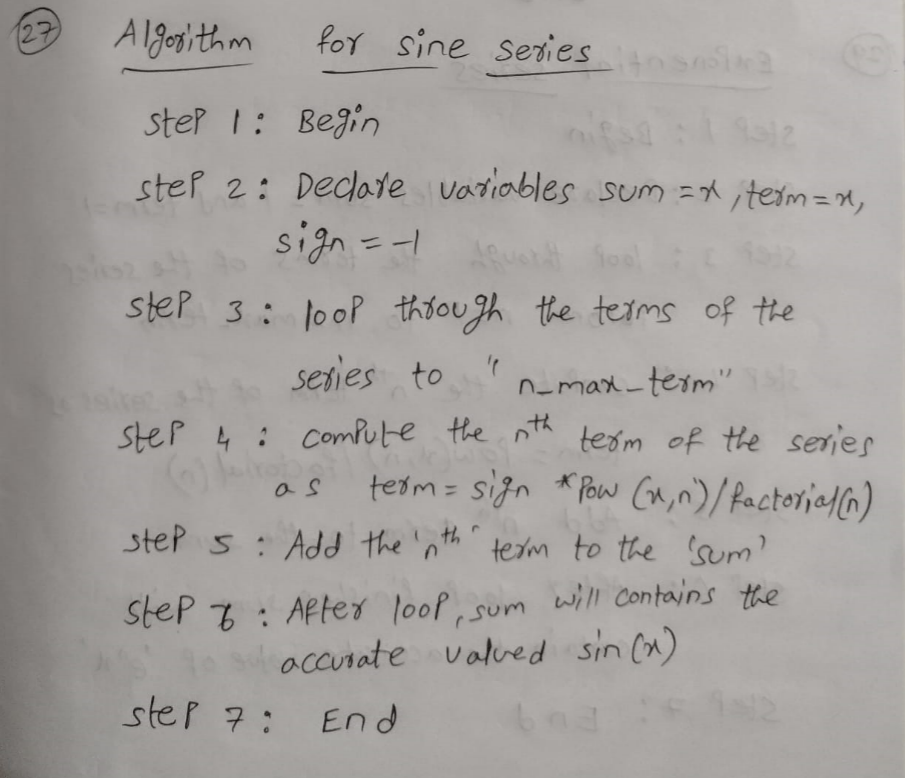 27 Algorithm for sine series
step 1 : Begin
step 2 : Declare variables sum = x, term = x,
sign = -1
step 3 : loop through the terms of the
series to "n_max_term"
step 4 : compute the nth term of the series
as term = sign * pow (x,n)/factorial(n)
step 5 : Add the 'nth" term to the 'sum'
step 6 : After loop, sum will contains the
accurate valued sin(x)
step 7 : End